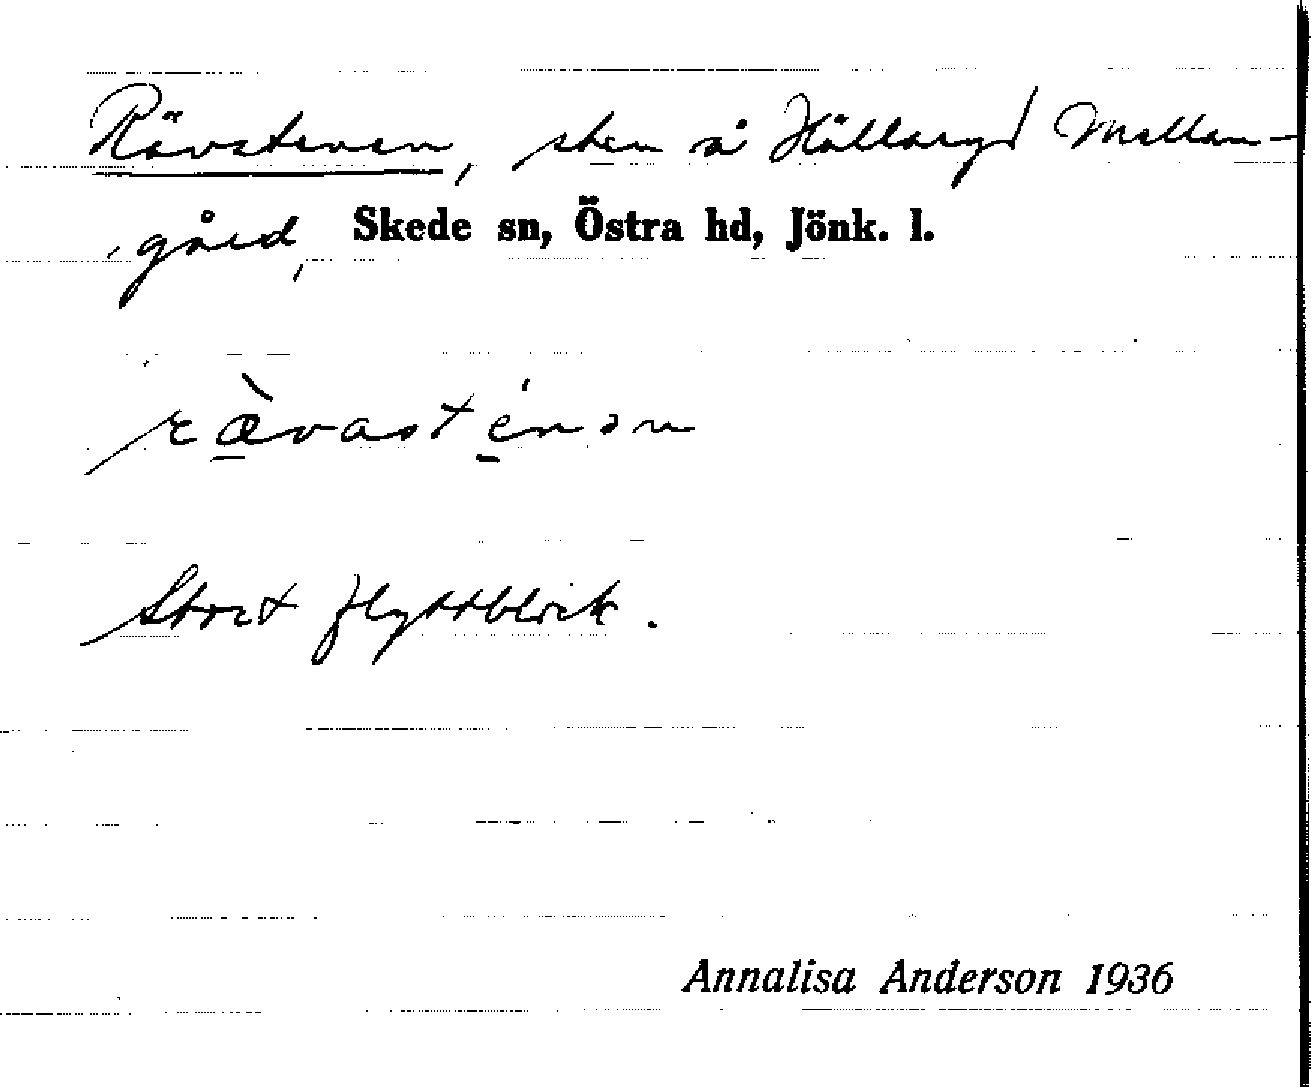 Rävstenen, sten å Hållaryd Mellan-
gård, Skede sn, Östra hd, Jönk. l.
ræ̀vasténən
Stort flyttblock.
Annalisa Anderson 1936